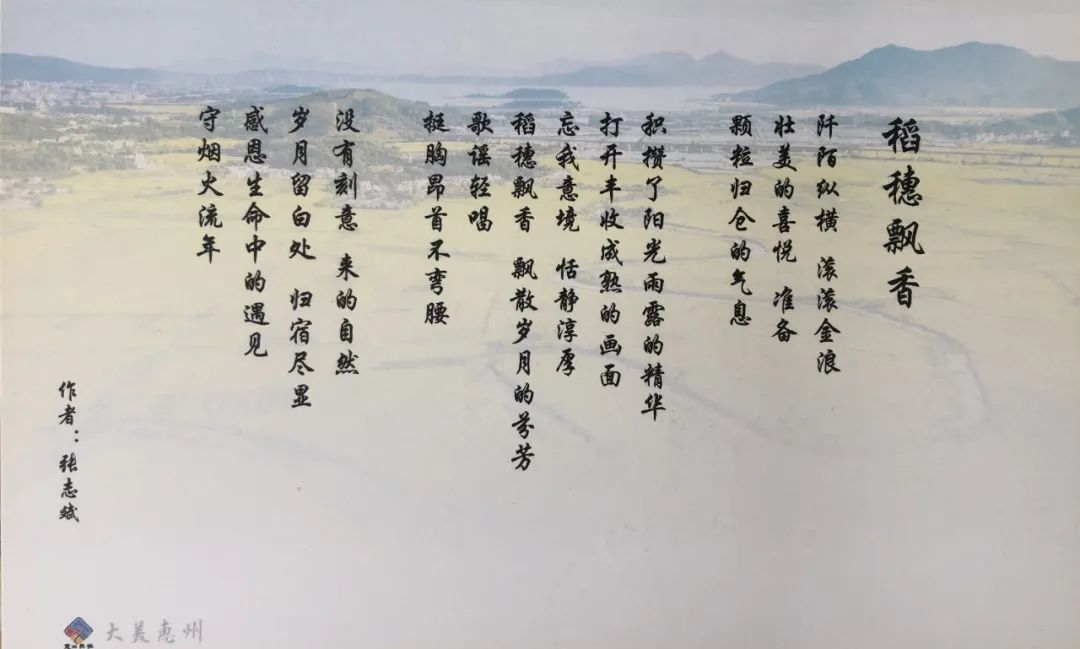 稻穗飘香
阡陌纵横 滚滚金浪
壮美的喜悦 准备
颗粒归仓的气息
积攒了阳光雨露的精华
打开丰收成熟的画面
忘我意境 恬静淳厚
稻穗飘香 飘散岁月的芬芳
歌谣轻唱
挺胸昂首不弯腰
没有刻意 来的自然
岁月留白处 归宿尽显
感恩生命中的遇见
守烟火流年
作者：张志斌
大美惠州